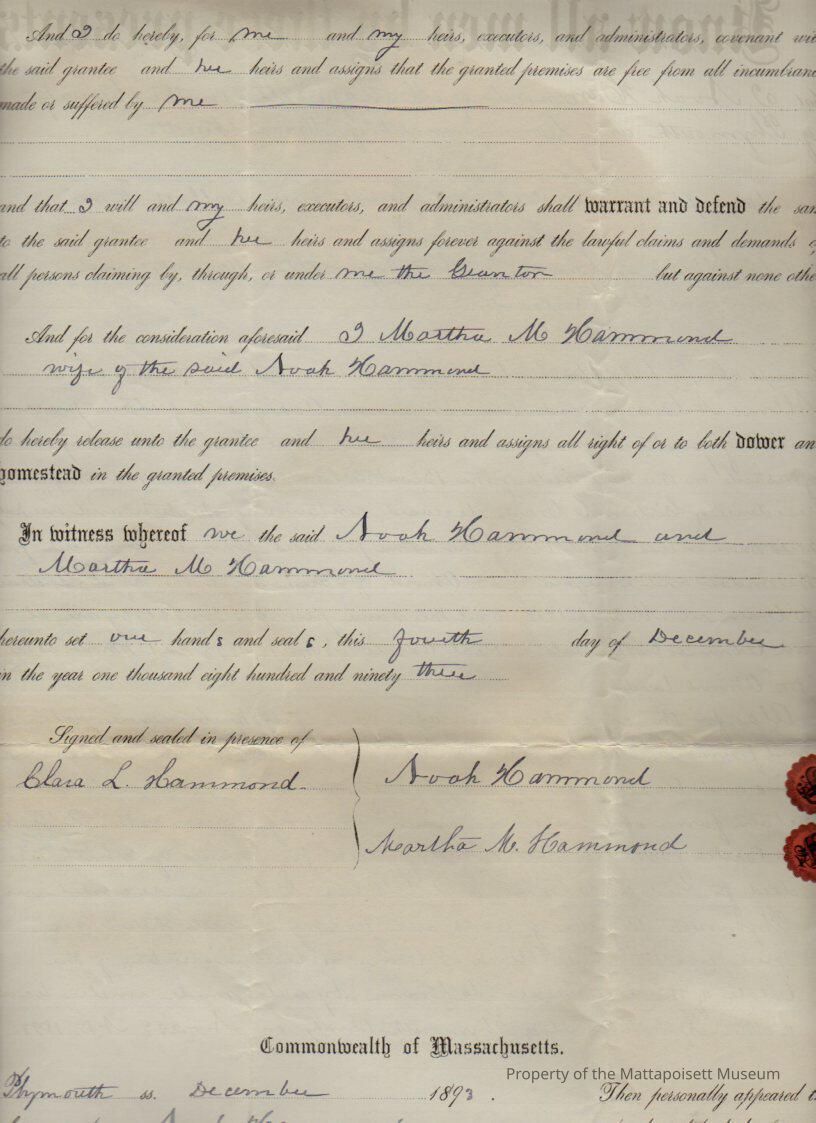 And I do hereby, for me and my heirs, executors, and administrators, covenant
the said grantee and her heirs and assigns that the granted premises are free from all
made or suffered by me
and that I will and my heirs, executors, and administrators shall warrant and defend the
to the said grantee and her heirs and assigns forever against the lawful claims and demands
all persons claiming by, through, or under me the Grantor but against none
And for the consideration aforesaid I Martha M Hammond
wife of the said Noah Hammond
do hereby release unto the grantee and her heirs and assigns all right of or to both dower
homestead in the granted premises.
In witness whereof we the said Noah Hammond and
Martha M Hammond
hereunto set our hands and seals, this fourth day of December
in the year one thousand eight hundred and ninety three
Signed and sealed in presence of
Clara L. Hammond.
Noah Hammond
Martha M. Hammond
Commonwealth of Massachusetts.
Property of the Mattapoisett Museum
Plymouth ss. December 1893. Then personally appeared